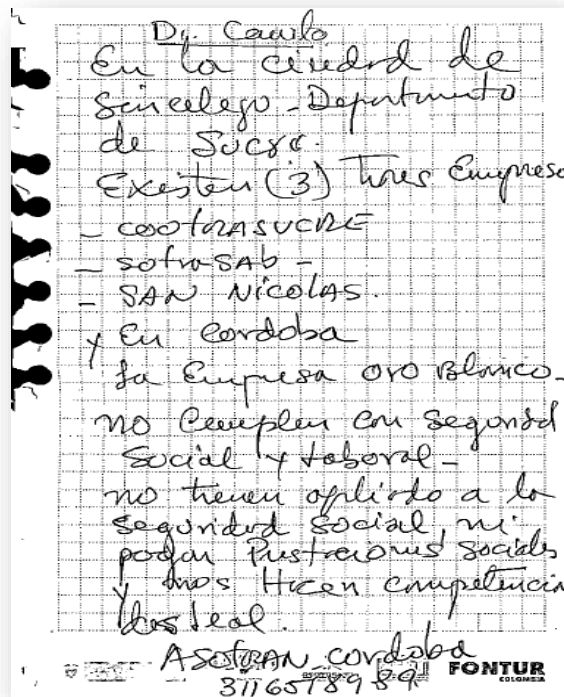 Dr. Camilo
En la ciudad de
Sincelego - Departamento
de Sucre.
Existen (3) tres Empresa
- COOTRASUCRE
- SOTRASAB -
- SAN NICOLAS.
y En Cordoba
La Empresa ORO BLANCO -
no Cumplen con Seguridad
Social y Laboral -
no tienen afiliado a la
Seguridad Social, ni
pagan Prestaciones Sociales
y nos Hacen competencia
desleal.
ASOTRAN Cordoba
FONTUR
COLOMBIA